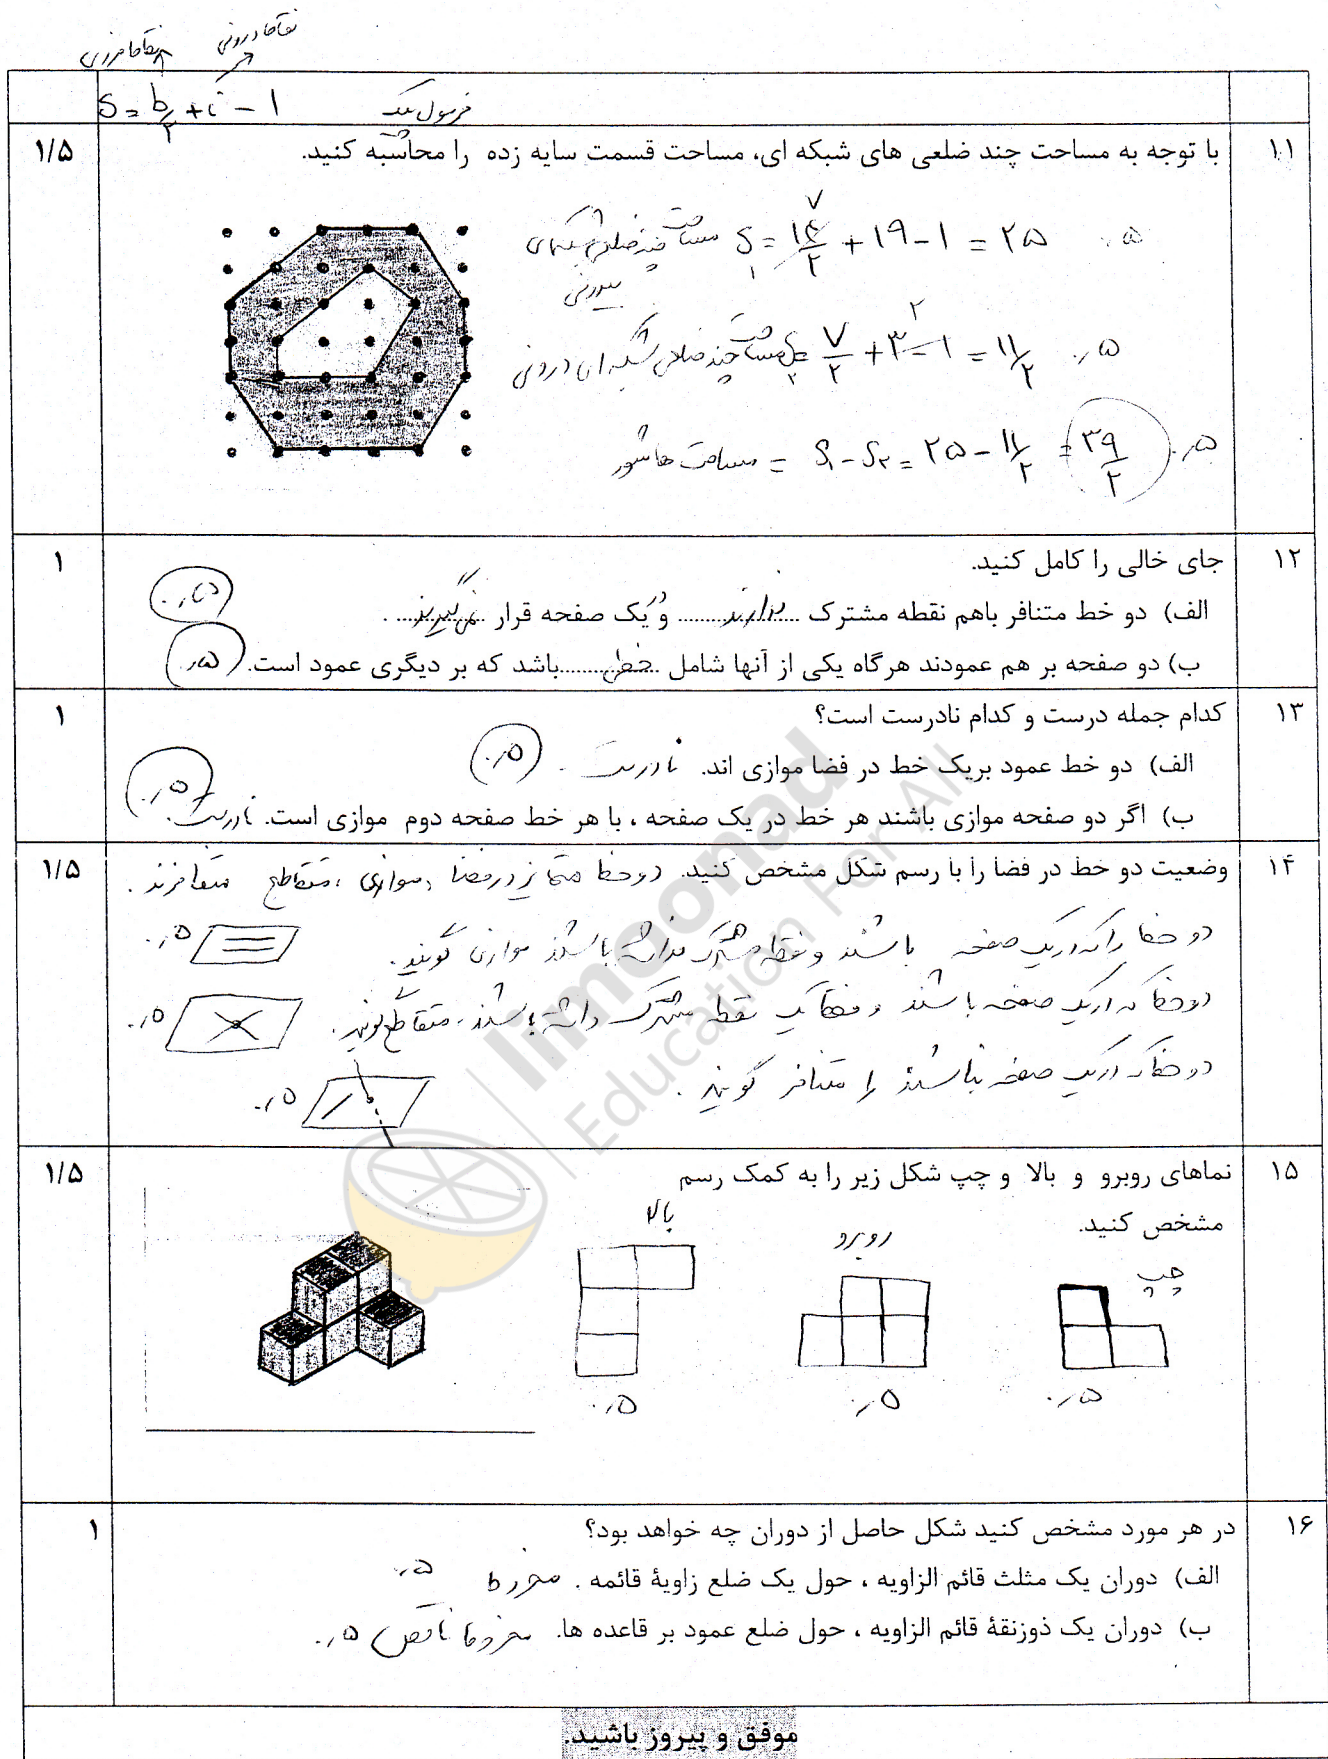 نقاط درونی
نقاط مرزی
فرمول پیک S = b/۲ + i - 1
۱۱ با توجه به مساحت چند ضلعی های شبکه ای، مساحت قسمت سایه زده را محاسبه کنید. ۱/۵
مساحت چند ضلعی شبکه‌ای بیرونی S۱ = ۱۴/۲ + ۱۹ - ۱ = ۲۵ ۰/۵
۷
مساحت چند ضلعی شبکه ای درونی S۲ = ۷/۲ + ۳ - ۱ = ۱۱/۲ ۰/۵
۲
مساحت هاشور = S۱ - S۲ = ۲۵ - ۱۱/۲ = ۳۹/۲ ۰/۵
۱۲ جای خالی را کامل کنید. ۱
الف) دو خط متنافر باهم نقطه مشترک ندارند و در یک صفحه قرار نمی گیرند. ۰/۵
ب) دو صفحه بر هم عمودند هرگاه یکی از آنها شامل خطی باشد که بر دیگری عمود است. ۰/۵
۱۳ کدام جمله درست و کدام نادرست است؟ ۱
الف) دو خط عمود بریک خط در فضا موازی اند. نادرست. ۰/۵
ب) اگر دو صفحه موازی باشند هر خط در یک صفحه ، با هر خط صفحه دوم موازی است. نادرست. ۰/۵
۱۴ وضعیت دو خط در فضا را با رسم شکل مشخص کنید. دو خط متمایز در فضا، موازی، متقاطع متنافرند. ۱/۵
دو خط را که در یک صفحه باشند و نقطه مشترک نداشته باشند موازی گویند. ۰/۵
دو خط که در یک صفحه باشند و فقط یک نقطه مشترک داشته باشند، متقاطع گویند. ۰/۵
دو خط که در یک صفحه نباشند را متنافر گویند. ۰/۵
۱۵ نماهای روبرو و بالا و چپ شکل زیر را به کمک رسم ۱/۵
مشخص کنید.
چپ روبرو بالا
۰/۵ ۰/۵ ۰/۵
۱۶ در هر مورد مشخص کنید شکل حاصل از دوران چه خواهد بود؟ ۱
الف) دوران یک مثلث قائم الزاویه ، حول یک ضلع زاویهٔ قائمه . مخروط ۰/۵
ب) دوران یک ذوزنقهٔ قائم الزاویه ، حول ضلع عمود بر قاعده ها. مخروط ناقص ۰/۵
موفق و پیروز باشید.
limoonad
Education For All